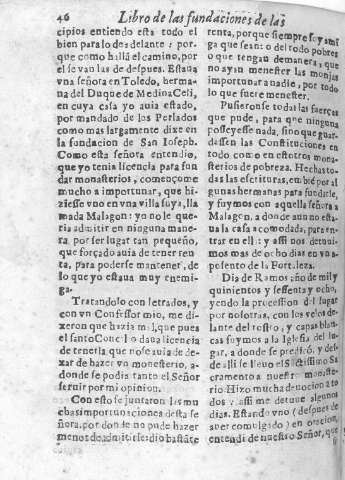 46 Libro de las fundaciones de las
cipios entiendo esta todo el
bien para lo de adelante: por-
que como hallã el camino, por
el se van las de despues. Estaua
vna señora en Toledo, herma-
na del Duque de Medina Celi,
en cuya casa yo auia estado,
por mandado de los Perlados
como mas largamente dixe en
la fundacion de San Ioseph.
Como esta señora entendio,
que yo tenia licencia para fun
dar monasterios, començome
mucho a importunar, que hi-
ziesse vno en vna villa suya, lla
mada Malagon: yo no le que-
ria admitir en ninguna mane-
ra, por ser lugar tan pequeño,
que forçado auia de tener ren-
ta, para poderse mantener, de
lo que yo estaua muy enemi-
ga.
Tratandolo con letrados, y
con vn Confessor mio, me di-
xeron que hazia mal, que pues
el santo Concilio daua licencia
de tenerla, que no se auia de de-
xar de hazer vn monesterio, a-
donde se podia tanto el Señor
seruir por mi opinion.
Con esto se juntaron las mu
chas importunaciones desta se
ñora, por donde no pude hazer
menos de admitirle: dio bastãte
renta, porque siempre soy ami
ga que sean: o del todo pobres
o que tengan de manera, que
no ayan menester las monjas
importunar a nadie, por todo
lo que fuere menester.
Pusieronse todas las fuerças
que pude, para que ninguna
posseyesse nada, sino que guar-
dassen las Constituciones en
todo como en estotros mona-
sterios de pobreza. Hechas to-
das las escrituras, embiè por al
gunas hermanas para fundarle,
y fuymos con aquella señora a
Malagon, a donde aun no esta-
ua la casa acomodada, para en-
trar en ella: y assi nos detuui-
mos mas de ocho dias en vn a-
posento de la Fortaleza.
Dia de Ramos año de mil y
quinientos y sessenta y ocho,
yendo la procession del lugar
por nosotras, con los velos de-
lante del rostro, y capas blan-
cas fuymos a la Iglesia del lu-
gar, a donde se predicò, y des-
de alli se lleuo el Santissimo Sa
cramento a nuestro monaste-
rio. Hizo mucha deuocion a to
dos, y assi me detuue algunos
dias. Estando vno (despues de
auer comulgado) en oracion,
entendi de nuestro Señor, que